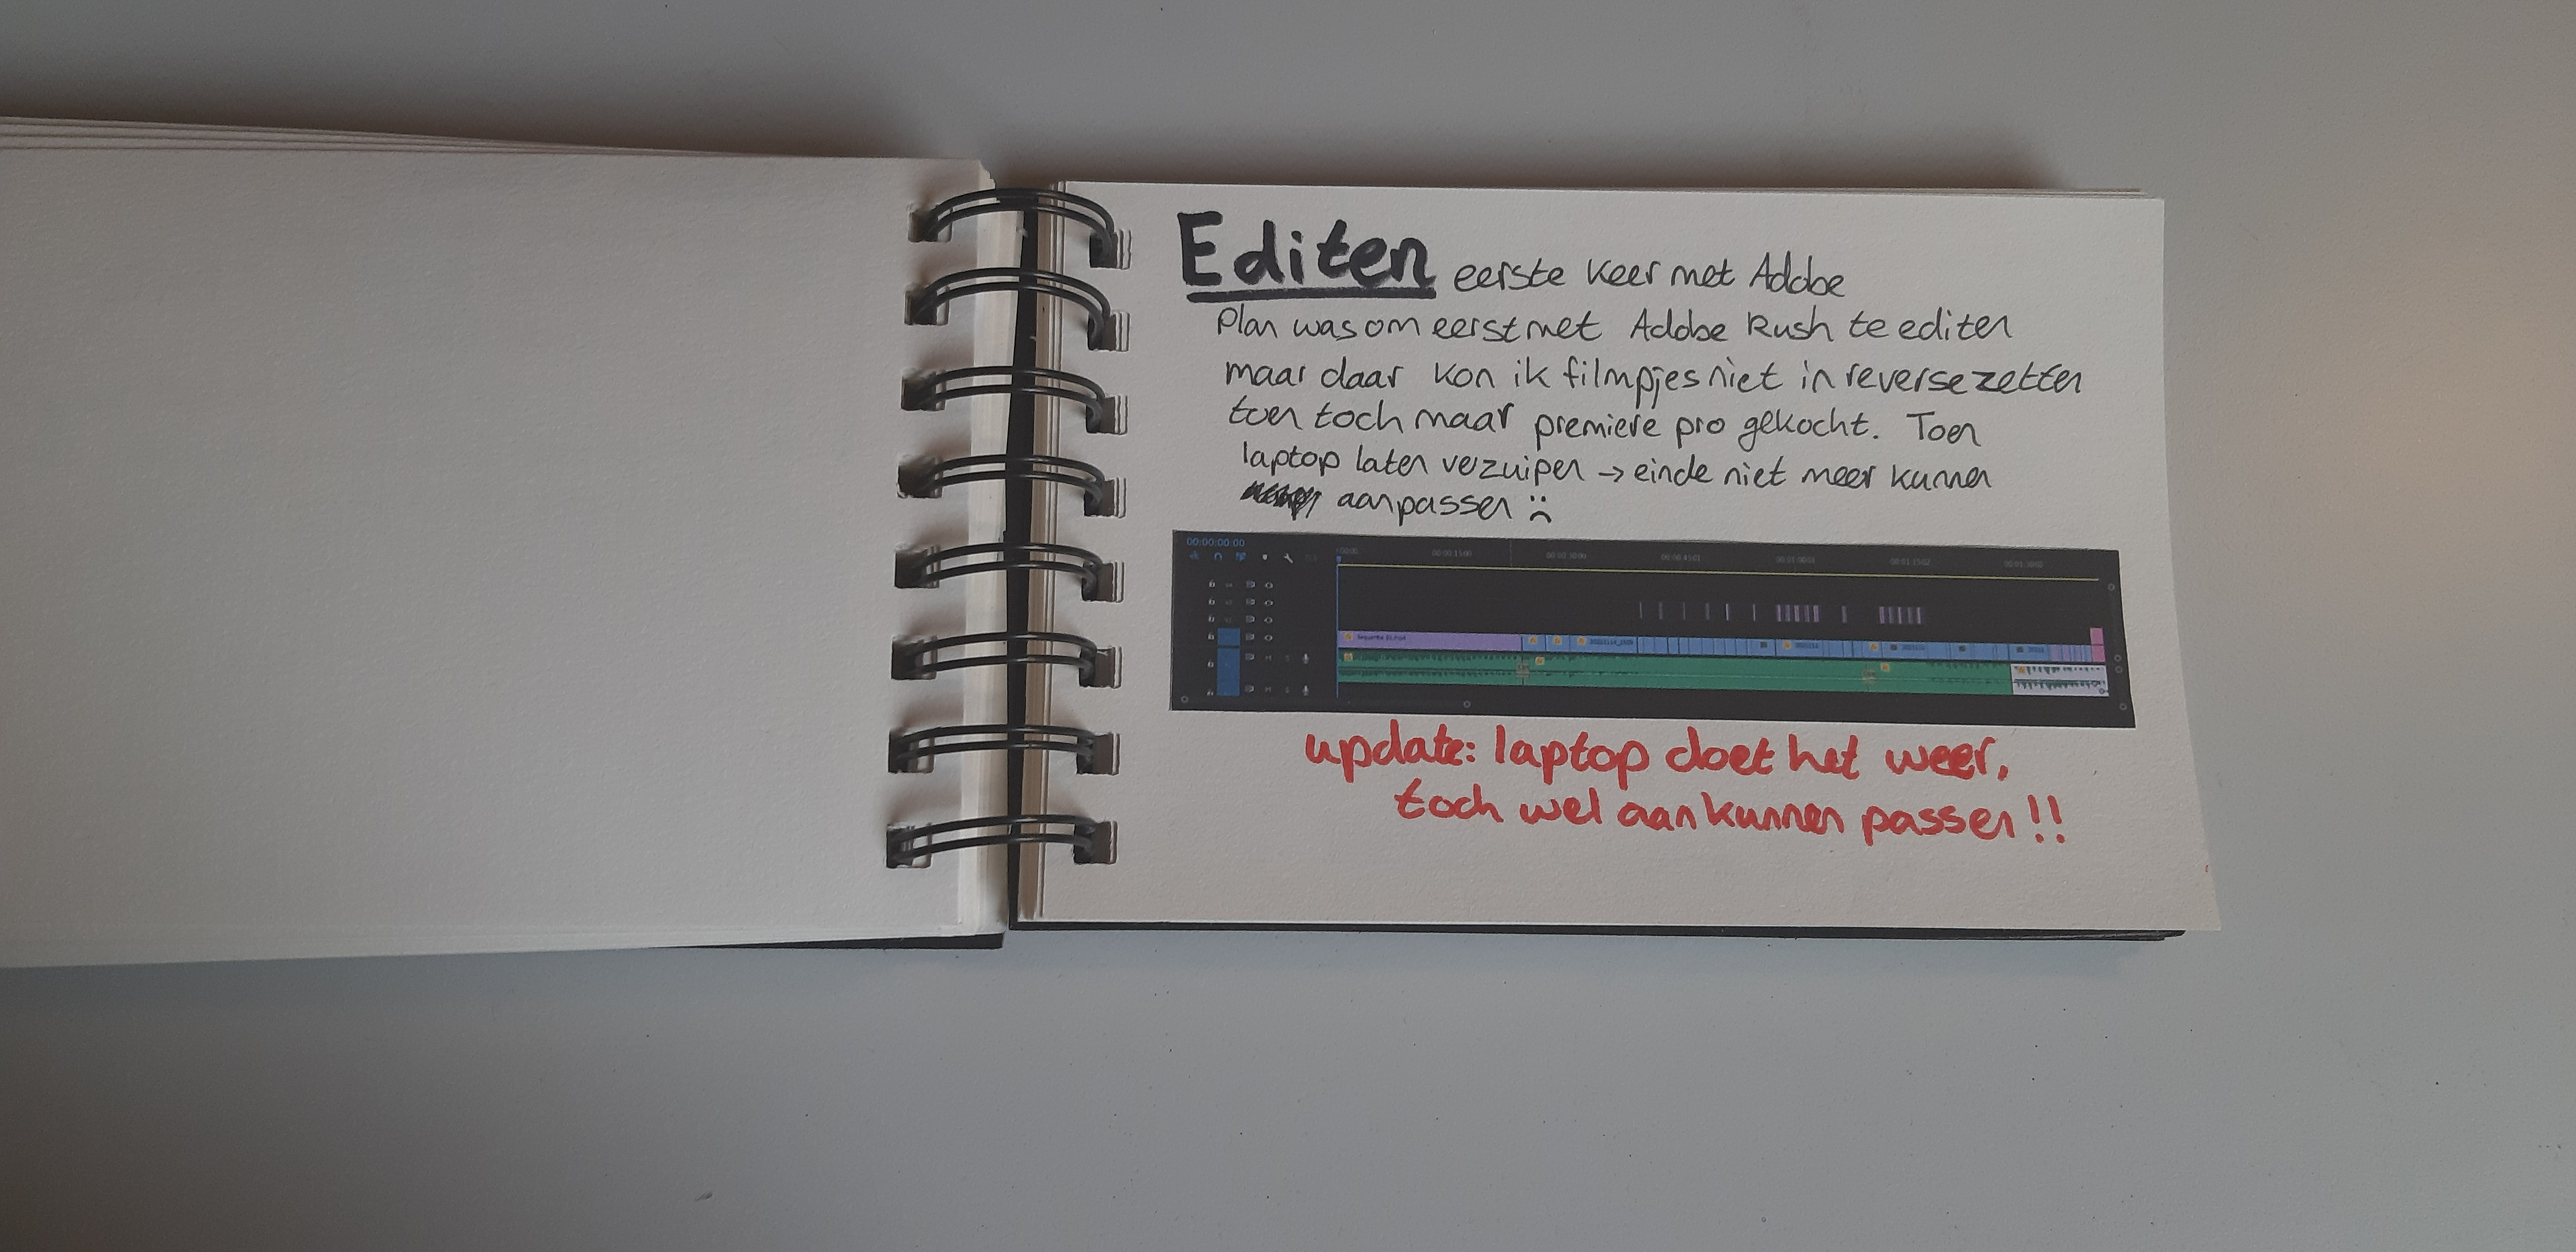 Editen eerste keer met Adobe
Plan was om eerst met Adobe Rush te editen
maar daar kon ik filmpjes niet in reverse zetten
toen toch maar premiere pro gekocht. Toen
laptop laten verzuipen → einde niet meer kunnen
aanpassen :(
00:00:00:00
Sequentie 01.mp4
update: laptop doet het weer,
toch wel aan kunnen passen!!